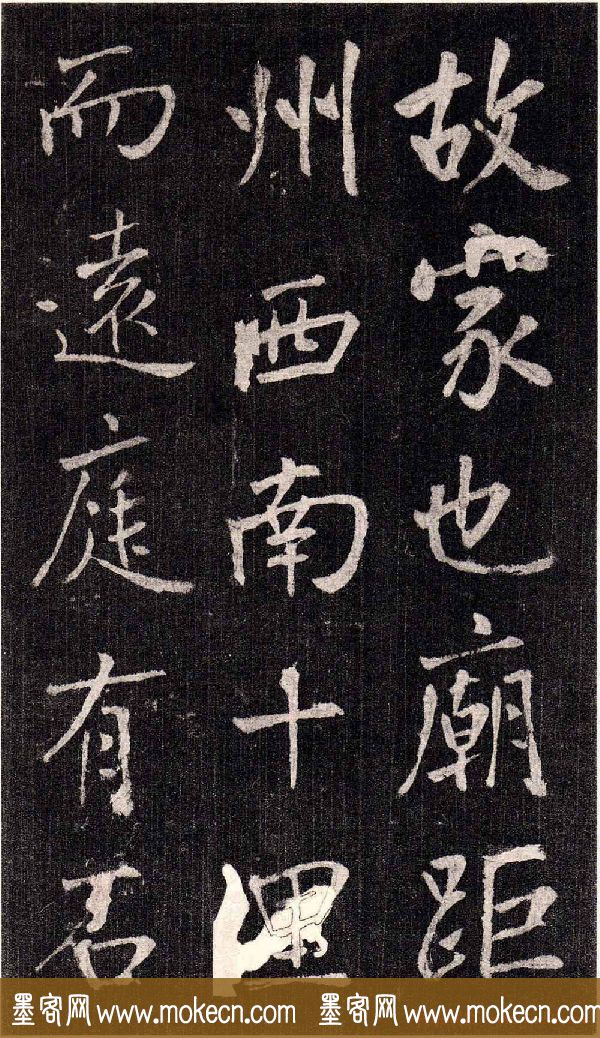 故家也廟距
州西南十里
而遠庭有石
墨客网 www.mokecn.com 墨客网 www.mokecn.com